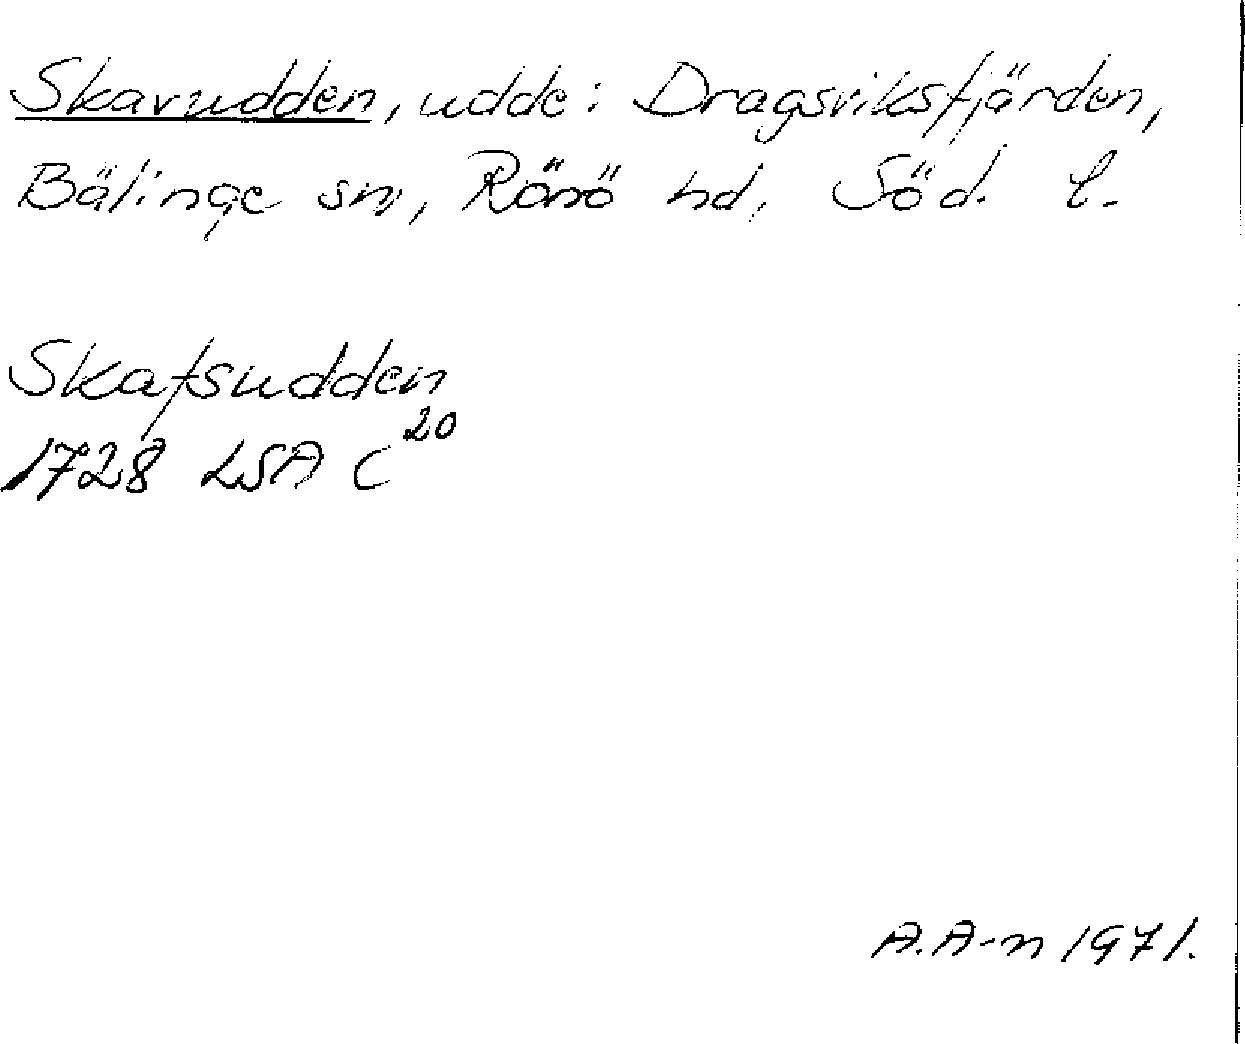 Skavudden, udde i Dragsviksfjärden,
Bälinge sn, Rönö hd, Söd. l.
Skafsudden
1728 LSA C20
A.A-n 1971.